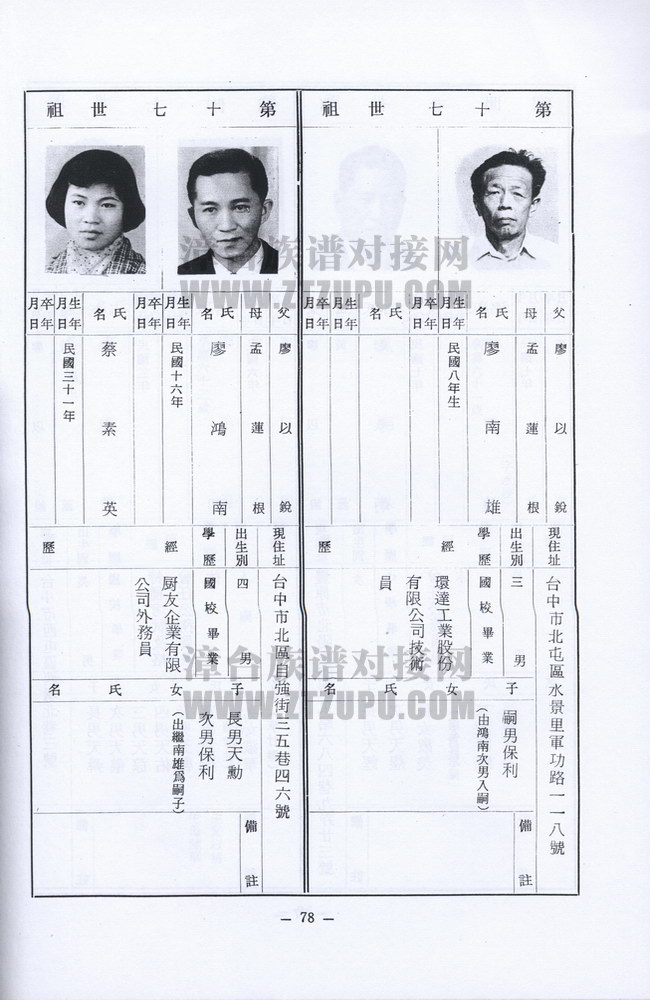 第十七世祖
父 廖以銳
母 孟蓮根
氏名 廖南雄
生年月日 民國八年生
卒年月日
氏名
生年月日
卒年月日
現住址 台中市北屯區水景里軍功路一一八號
出生別 三男
學歷 國校畢業
經歷 環達工業股份
有限公司技術
員
子女氏名 嗣男保利
(由鴻南次男入嗣)
備註
第十七世祖
父 廖以銳
母 孟蓮根
氏名 廖鴻南
生年月日 民國十六年
卒年月日
氏名 蔡素英
生年月日 民國三十一年
卒年月日
現住址 台中市北區自強街三五巷四六號
出生別 四男
學歷 國校畢業
經歷 廚友企業有限
公司外務員
子女氏名 長男天勳
次男保利
(出繼南雄為嗣子)
備註
— 78 —
漳台族谱对接网
WWW.ZTZUPU.COM
漳台族谱对接网
WWW.ZTZUPU.COM